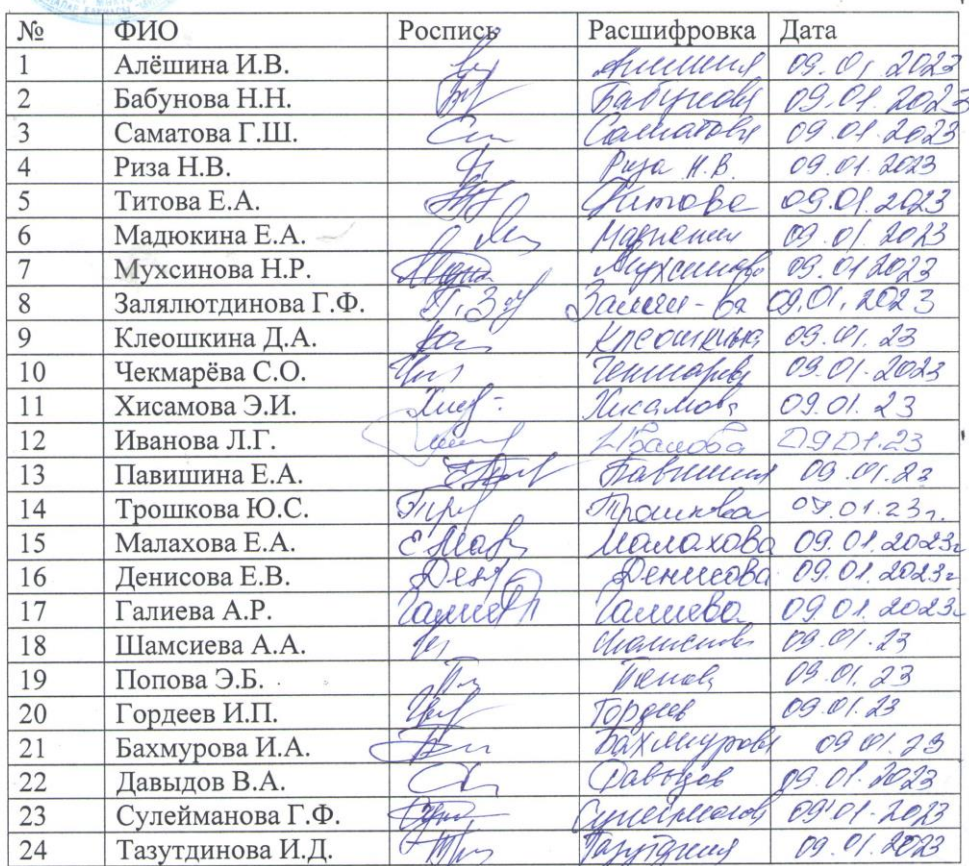 № ФИО Роспись Расшифровка Дата
1 Алёшина И.В. 09.01 2023
2 Бабунова Н.Н. Бабунова 09.01.2023
3 Саматова Г.Ш. Саматова 09.01.2023
4 Риза Н.В. Риза Н.В. 09.01.2023
5 Титова Е.А. Титова 09.01.2023
6 Мадюкина Е.А. 09.01.2023
7 Мухсинова Н.Р. Мухсинова 09.01.2023
8 Залялютдинова Г.Ф. 09.01.2023
9 Клеошкина Д.А. Клеошкина 09.01.23
10 Чекмарёва С.О. 09.01.2023
11 Хисамова Э.И. Хисамова 09.01.23
12 Иванова Л.Г. Иванова 09.01.23
13 Павишина Е.А. 09.01.23
14 Трошкова Ю.С. Трошкова 09.01.23г.
15 Малахова Е.А. Малахова 09.01.2023г
16 Денисова Е.В. Денисова 09.01.2023г
17 Галиева А.Р. Галиева 09.01.2023г
18 Шамсиева А.А. 09.01.23
19 Попова Э.Б. 09.01.23
20 Гордеев И.П. Гордеев 09.01.23
21 Бахмурова И.А. Бахмурова 09.01.23
22 Давыдов В.А. Давыдов 09.01.2023
23 Сулейманова Г.Ф. 09.01.2023
24 Тазутдинова И.Д. 09.01.2023